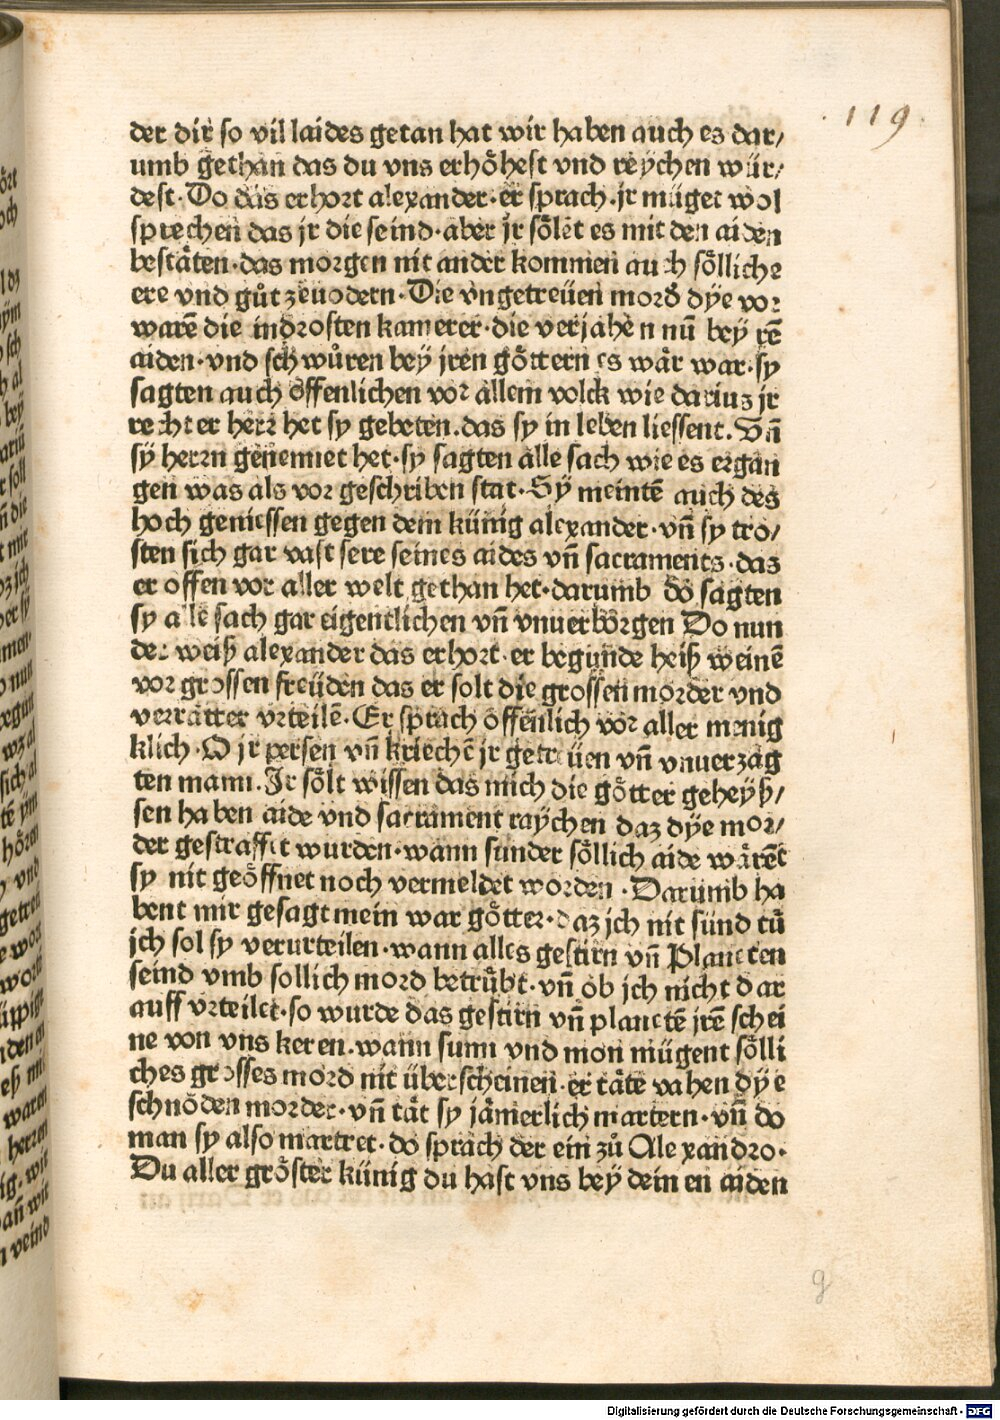 119
der dir so vil laides getan hat wir haben auch es dar/
umb gethan das du vns erhöhest vnd reychen wür/
dest. Do das erhort alexander. er sprach. jr müget wol
sprechen das jr die seind. aber jr sölet es mit den aiden
bestäten. das morgen nit ander kommen auch sölliche
ere vnd gůt zeuodern. Die vngetreüen mord dye vor
warē die indrosten kamerer. die verjahen nū bey irē
aiden. vnd schwůren bey jren göttern es wär war. sy
sagten auch offenlichen vor allem volck wie darius jr
rechter herr het sy gebeten. das sy in leben liessent. Vñ
sy herrn genennet het. sy sagten alle sach wie es ergan
gen was als vor geschriben stat. Sy meintē auch des
hoch geniessen gegen dem künig alexander. vñ sy tro/
sten sich gar vast sere seines aides vñ sacraments. das
er offen vor aller welt gethan het. darumb do sagten
sy alle sach gar eigentlichen vñ vnuerborgen Do nun
der weiß alexander das erhort. er begunde heiß weinē
vor grossen freüden das er solt die grossen morder vnd
verrätter vrteilē. Er sprach offenlich vor aller menig
klich. O jr persen vñ kriechē jr getreüen vñ vnuerzag
ten mann. Ir sölt wissen das mich die götter geheyß/
sen haben aide vnd sacrament raychen daz dye mor/
der gestraffet wurden. wann sunder söllich aide wärēt
sy nit geöffnet noch vermeldet worden. Darumb ha
bent mir gesagt mein war götter. daz jch nit sünd tů
jch sol sy verurteilen. wann alles gestirn vñ Planeten
seind vmb sollich mord betrůbt. vñ ob jch nicht dar
auff vrteilet. so wurde das gestirn vñ planetē jrē schei
ne von vns keren. wann sunn vnd mon mügent sölli
ches grosses mord nit überscheinen. er täte vahen dye
schnöden morder. vñ tät sy jämerlich martern. vñ do
man sy also martret. do sprach der ein zů Alexandro.
Du aller gröster künig du hast vns bey deinen aiden
g
Digitalisierung gefördert durch die Deutsche Forschungsgemeinschaft - DFG